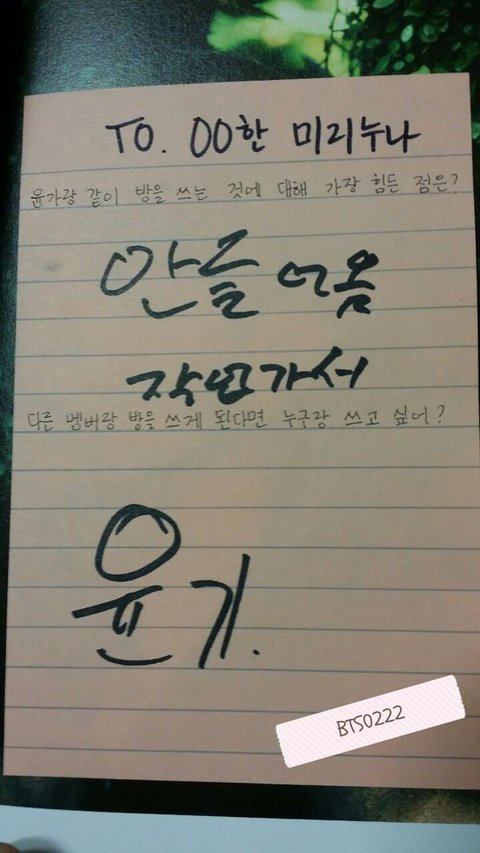 TO. OO한 미리누나
윤기랑 같이 방을 쓰는 것에 대해 가장 힘든 점은?
안들어옴
작업가서
다른 멤버랑 방을 쓰게 된다면 누구랑 쓰고 싶어?
윤기.
BTS0222